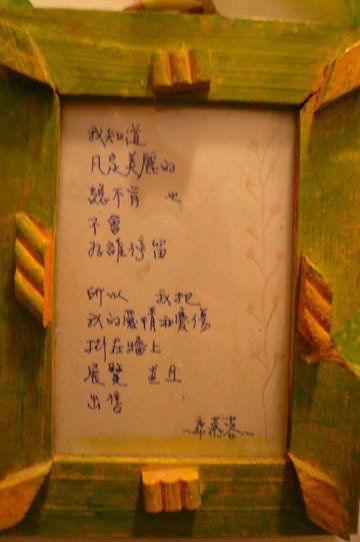 我知道
凡是美麗的
總不肯 也
不會
為誰停留
所以 我把
我的愛情和憂傷
掛在牆上
展覽 並且
出售
～席慕蓉～